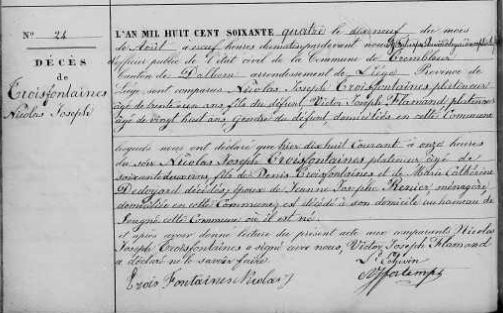 N° 24
DÉCÈS
de
Troisfontaines
Nicolas Joseph
L'AN MIL HUIT CENT SOIXANTE quatre le dix neuf du mois
de Août à neuf heures du matin pardevant nous
officier public de l'état civil de la Commune de Trembleur
Canton de Dalhem arrondissement de Liège Province de
Liège sont comparus Nicolas Joseph Troisfontaines platineur
âgé de trente deux ans fils du défunt, Victor Joseph Flamand platineur
âgé de vingt huit ans, Gendre du défunt, domiciliés en cette Commune
lesquels nous ont déclaré que hier dix huit Courant à onze heures
du soir Nicolas Joseph Troisfontaines platineur âgé de
soixante deux ans, fils de Denis Troisfontaines et de Marie Catherine
Dedoyard décédés, époux de Jeanne Josephe Renier, ménagère
domiciliée en cette Commune, est décédé à son domicile au hameau de
cette Commune où il est né.
et après avoir donné lecture du présent acte aux comparants Nicolas
Joseph Troisfontaines a signé avec nous, Victor Joseph Flamand
a déclaré ne le savoir faire.
L'Echevin
Trois Fontaines Nicolas J